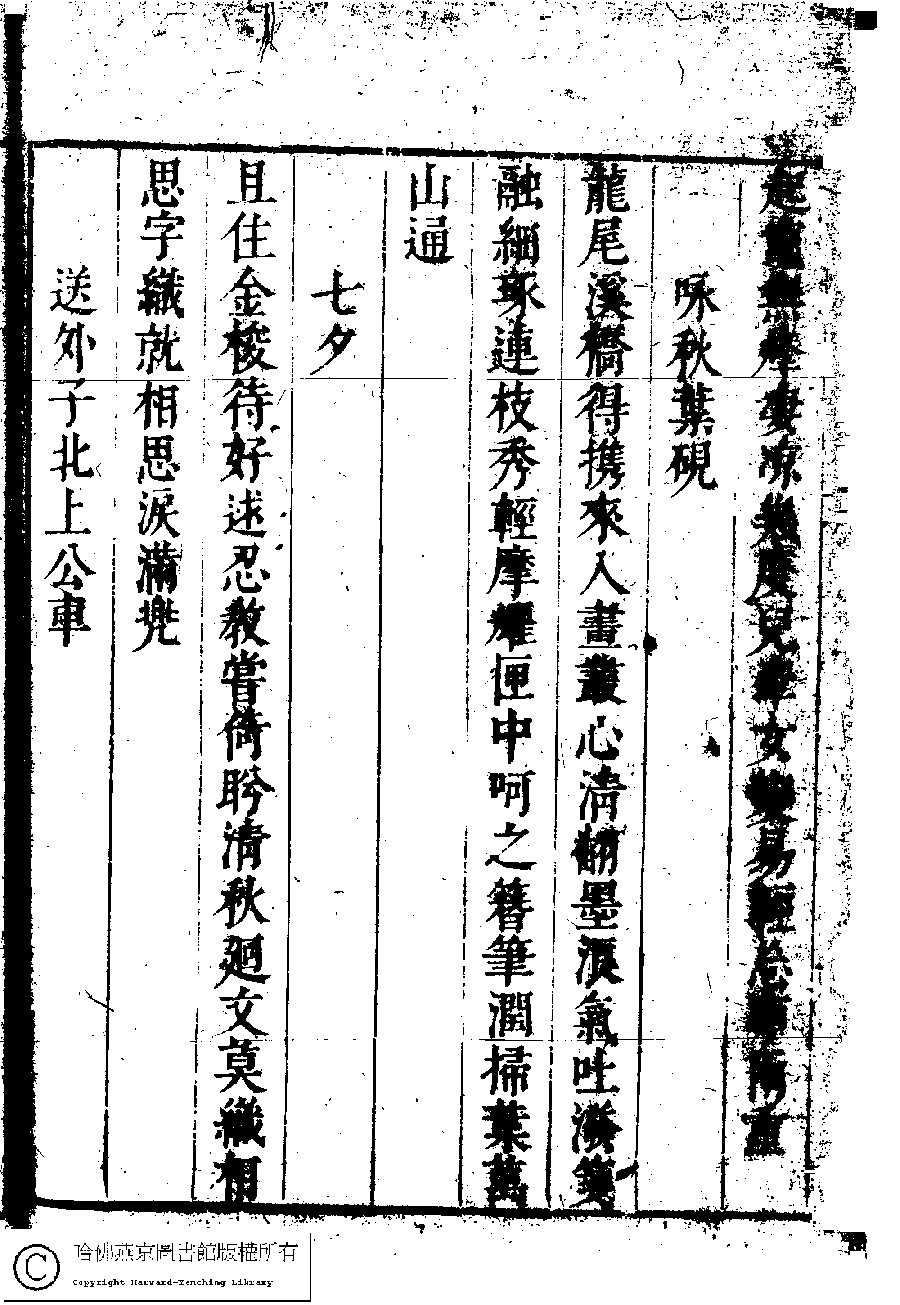 妻凉幾度兒牽女易輕重
咏秋葉硯
龍尾溪橋得携來入畫叢心清翻墨氣吐潑箋
融細琢連枝秀輕摩耀匣中呵之簪筆潤掃葉萬
山通
七夕
且住金梭待好逑忍教嘗倚盻清秋廻文莫織相
思字織就相思淚滿兠
送外子北上公車
哈佛燕京圖書館版權所有
Copyright Harvard-Yenching Library